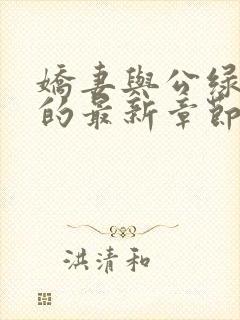 嬌妻與公綠
的最新章節
洪清和